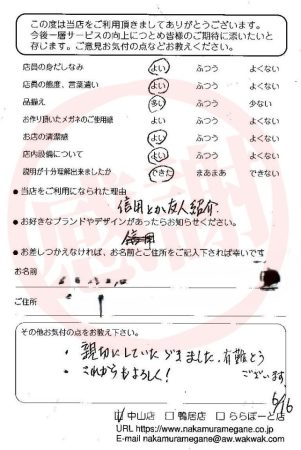 この度は当店をご利用頂きましてありがとうございます。
今後一層サービスの向上につとめ皆様のご期待に添いたいと
存じます。ご意見お気付の点などお教えください。
店員の身だしなみ よい ふつう よくない
店員の態度、言葉遣い よい ふつう よくない
品揃え 多い ふつう 少ない
お作り頂いたメガネのご使用感 よい ふつう よくない
お店の清潔感 よい ふつう よくない
店内設備について よい ふつう よくない
説明が十分理解出来ましたか できた まあまあ できない
● 当店をご利用になられた理由
信用とか友人紹介
● お好きなブランドやデザインがあったらお知らせください。
信用
● お差しつかえなければ、お名前とご住所をご記入下されば幸いです
お名前
ご住所
その他お気付の点をお教え下さい。
・親切にしていただきました。有難とう
ございます。
・これからもよろしく!
6/16
中山店 鴨居店 ららぽーと店
URL https://www.nakamuramegane.co.jp
E-mail nakamuramegane@aw.wakwak.com